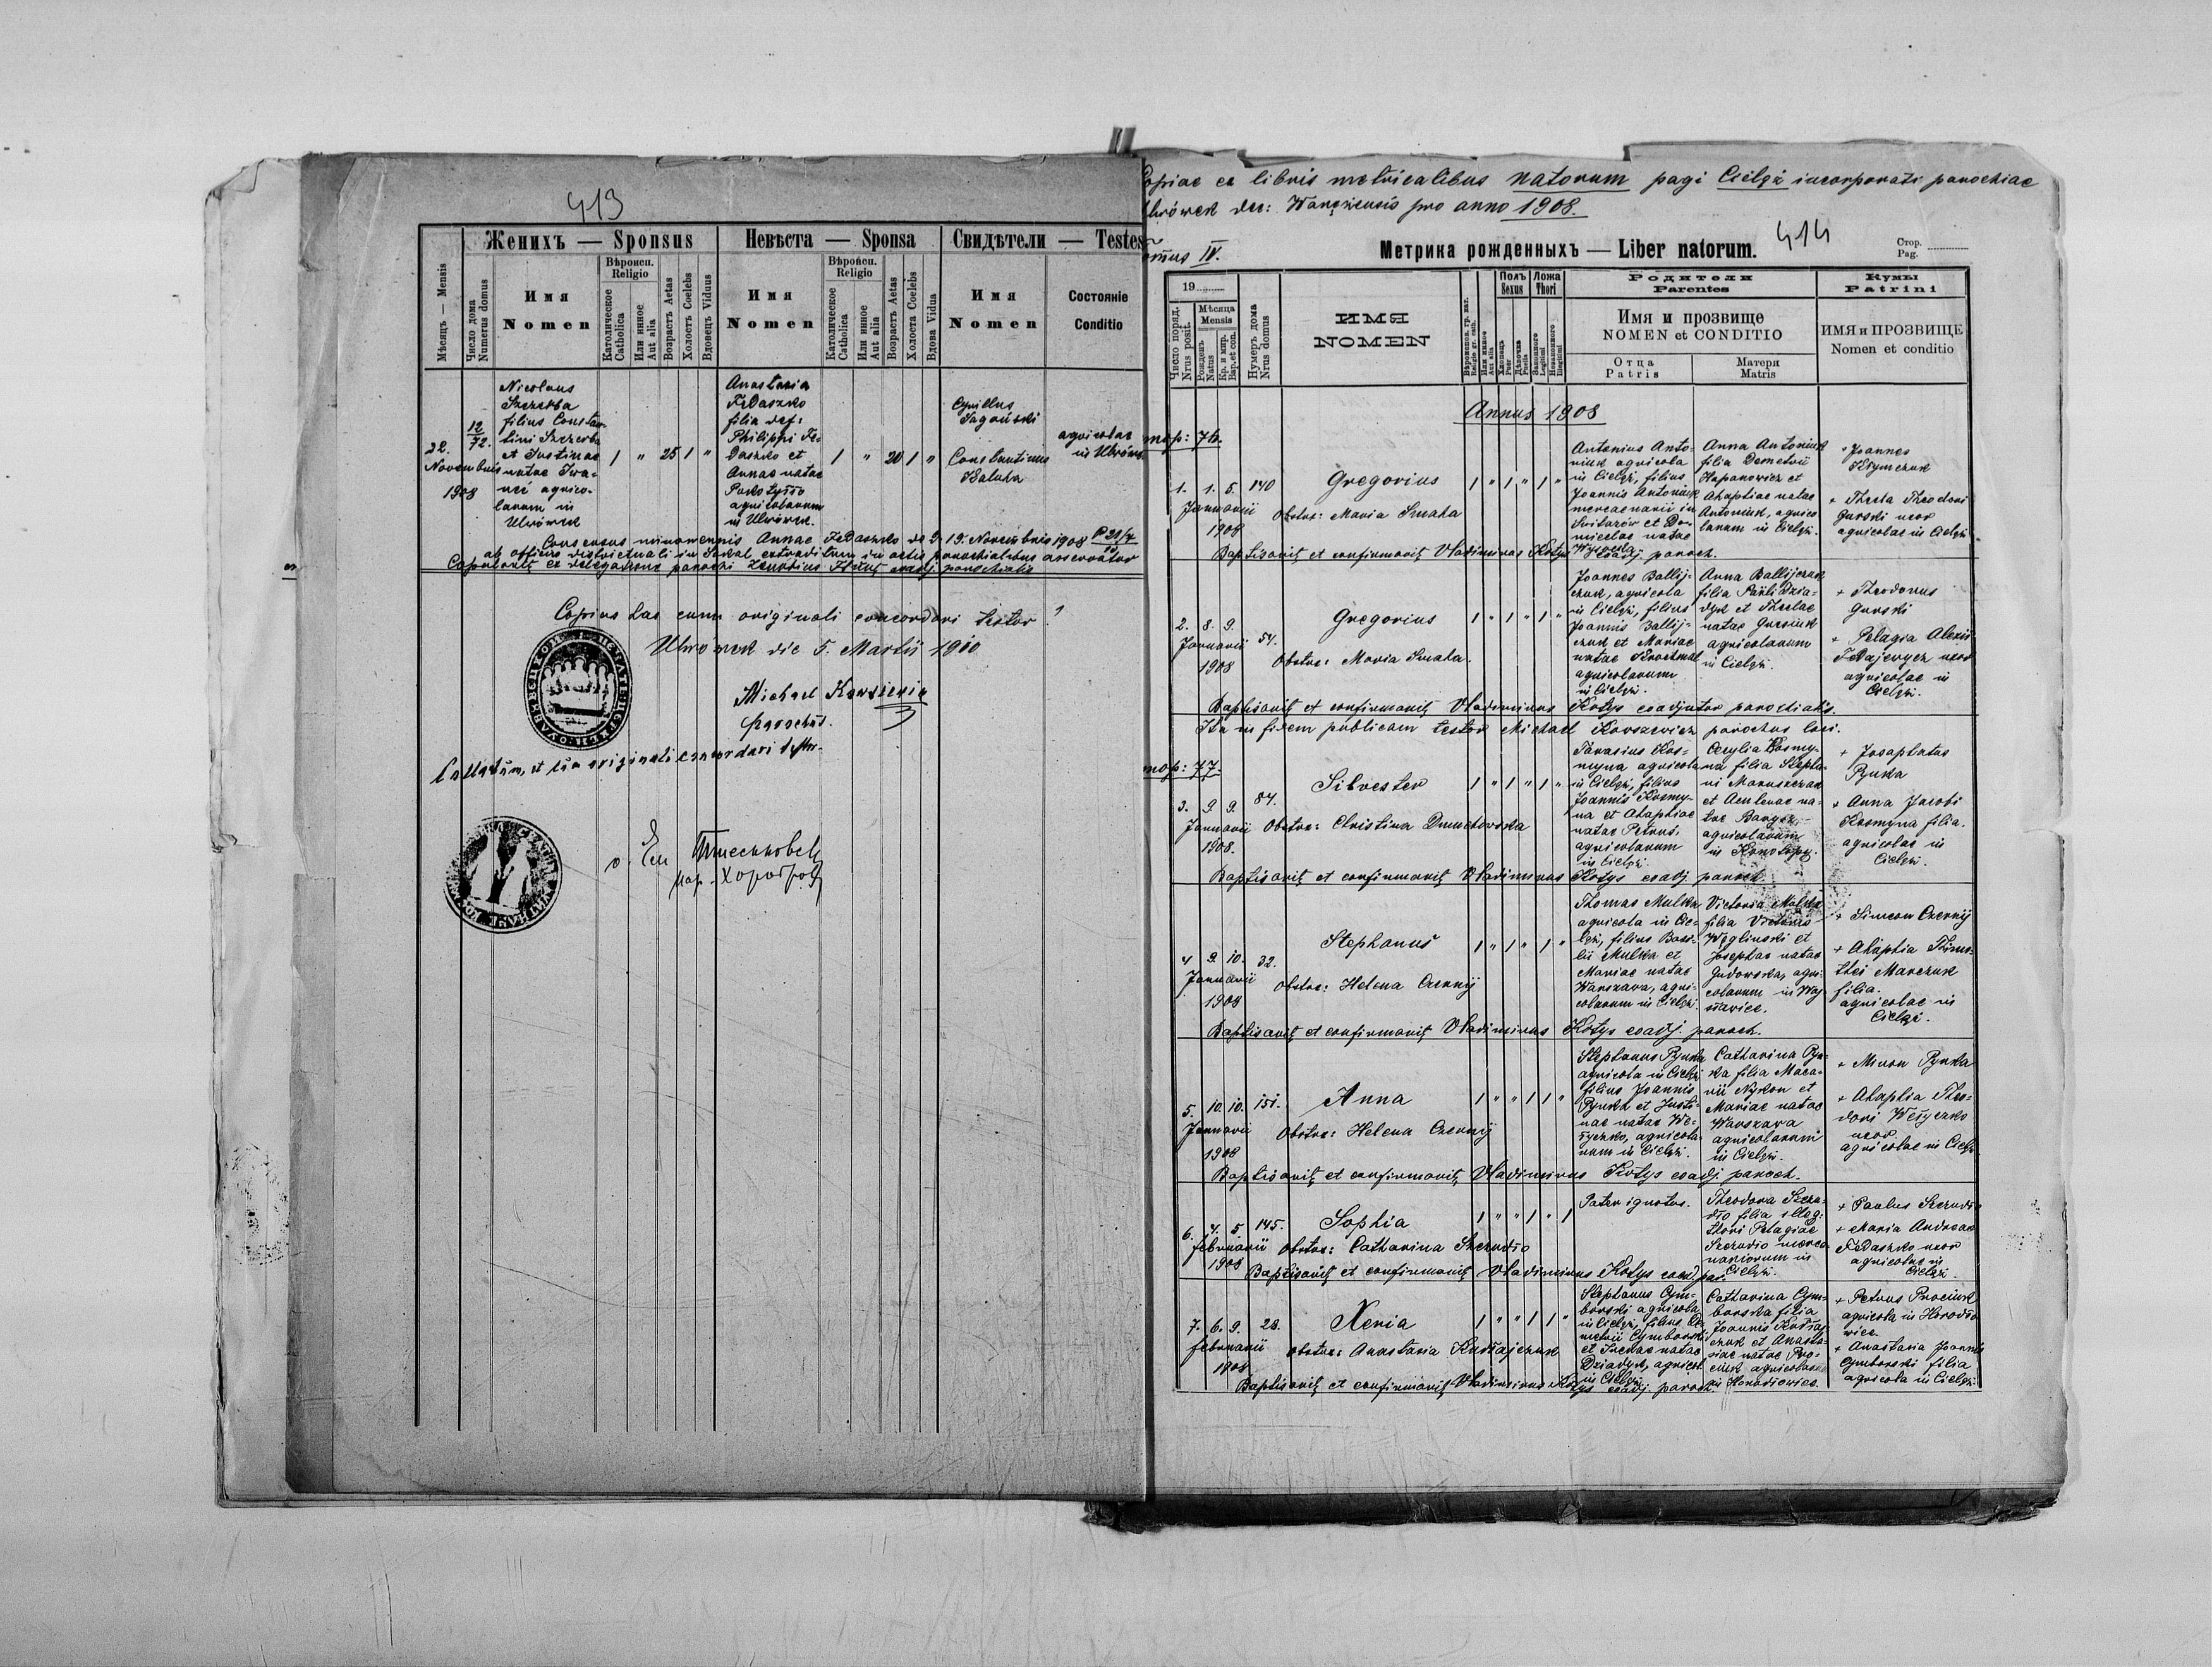 413
Женихъ — Sponsus
Невѣста — Sponsa
Свидѣтели — Testes
Мѣсяцъ — Mensis
Число дома
Numerus domus
Имя
Nomen
Вѣроисп.
Religio
Католическое
Catholica
Или инное
Aut alia
Возрастъ Aetas
Холостъ Coelebs
Вдовецъ Viduus
Имя
Nomen
Вѣроисп.
Religio
Католическое
Catholica
Или инное
Aut alia
Возрастъ Aetas
Холоста Coelebs
Вдова Vidua
Имя
Nomen
Состояніе
Conditio
22.
Novembris
1908
12
72.
Nicolaus
Szczerba
filius Constan-
tini Szczerba
et Justinae
natae Iwa-
nei agrico-
larum in
Uhrówek
1 " 25 1 "
Anastasia
Fedaszko
filia def:
Philippi Fe-
daszko et
Annae natae
agricolarum
in Uhrówek.
1 " 20 1 "
Cyrillus
Sagański
Constantinus
Bałuka
agricolae
in Uhrówek
Consensus minorennis Annae Fedaszko de d. 19. Novembris 1908
ab officio districtuali in Sokal extraditum in actis parochialibus asservatur
Copulavit ex delegatione parochi Zenobius coadj. parochialis
Copias has cum originali concordari testor
Uhrówek die 5. Martii 1910
Michael Korszewicz
parochus.
Collatum, et cum originali concordari testor
о. Ем
пар. Хоробров
Copiae ex libris metricalibus natorum pagi Cielęż incorporati parochiae
Uhrówek dec: Waręzensis pro anno 1908.
Tomus IV.
Метрика рожденныхъ — Liber natorum.
414
Стор.
Pag.
19
Число поряд.
Nrus posit.
Мѣсяца
Mensis
Рожденъ
Natus
Кр. и мир.
Bap. et con.
Нумеръ дома
Nrus domus
ИМЯ
NOMEN
Вѣроисповѣд. гр. кат.
Religio gr. cath.
Или инное
Aut alia
Полъ
Sexus
Хлопецъ
Puer
Дѣвочка
Puella
Ложа
Thori
Законного
Legitimi
Незаконного
Illegitimi
Родители
Parentes
Имя и прозвище
NOMEN et CONDITIO
Отца
Patris
Матери
Matris
Кумы
Patrini
ИМЯ и ПРОЗВИЩЕ
Nomen et conditio
Annus 1908
pag: 76.
1. 1. 5. 140
Januarii
1908
Gregorius
Obstrx: Maria Smaha
1 " 1 " 1 "
Antonius Anto-
niuk agricola
in Cielęż, filius
Joannis Antoniuk
mercenarii in
Switazów et Do-
micelae natae
Wysocka
Anna Antoniuk
filia Demetrii
Hapanowicz et
Ahaphiae natae
Antoniuk, agrico
larum in Cielęż.
+ Joannes
Klymczuk
+ Thecla Theodori
Gurski uxor
agricolae in Cielęż
Baptisavit et confirmavit Vladimirus Kotys coadj. paroch.
2. 8. 9. 54.
Januarii
1908
Gregorius
Obstrx: Maria Smaha.
1 " 1 " 1 "
Joannes Ballij-
czuk, agricola
in Cielęż, filius
Joannis Ballij-
czuk et Mariae
natae Krochmal
agricolarum
in Cielęż.
Anna Ballijczuk
filia Pauli Dzia-
dyk et Theclae
natae Gursiuk
agricolarum
in Cielęż.
+ Theodorus
Gurski
+ Pelagia Alexii
Fedajczycz uxor
agricolae in
Cielęż.
Baptisavit et confirmavit Vladimirus Kotys coadjutor parochialis.
Ita in fidem publicam testor Michael Korszewicz parochus loci.
pag: 77.
3. 9. 9. 84.
Januarii
1908.
Silvester
Obstrx: Christina Dmuchowska
1 " 1 " 1 "
Tarasius Kos-
myna agricola
in Cielęż, filius
Joannis Kosmy-
na et Ahaphiae
natae Petrus,
agricolarum
in Cielęż.
Cecylia Kosmy-
na filia Stepha-
ni Maruszczak
et Aculenae na-
tae Baryga
agricolarum
in Konotopy.
+ Josaphatus
Pynka
+ Anna Jacobi
Kosmyna filia.
agricolae in
Cielęż.
Baptisavit et confirmavit Vladimirus Kotys coadj. paroch.
4 9. 10. 32.
Januarii
1908
Stephanus
Obstrx: Helena Czernij
1 " 1 " 1 "
Thomas Mulka
agricola in Cie-
lęż, filius Basi-
lii Mulka et
Mariae natae
Warszawa, agri-
colarum in Cielęż.
Victoria Mulka
filia Victoris
Węglinski et
Josephae natae
Gudowska, agri-
colarum in Woj-
sławice.
+ Simeon Czernij
+ Ahaphia Timo-
thei Marczuk
filia.
agricolae in
Cielęż.
Baptisavit et confirmavit Vladimirus Kotys coadj. paroch.
5. 10. 10. 151.
Januarii
1908
Anna
Obstrx: Helena Czernij
1 " " 1 1 "
Stephanus Pynka
agricola in Cielęż
filius Joannis
Pynka et Justi-
nae natae We-
syczko, agricola-
rum in Cielęż.
Catharina Pyn-
ka filia Maca-
rii Nykon et
Mariae natae
Warszawa
agricolarum
in Cielęż.
+ Miron Pynka
+ Ahaphia Theo-
dori Wesyczko
uxor
agricolae in Cielęż.
Baptisavit et confirmavit Vladimirus Kotys coadj. paroch.
6. 4. 5. 145.
februarii
1908
Sophia
Obstrx: Catharina Szczudło
1 " " 1 " 1
Pater ignotus.
Theodora Szczu-
dło filia illeg.
thori Pelagiae
Szczudło merce
nariorum in
Cielęż.
+ Paulus Szczudło
+ Maria Andreae
Fedaszko uxor
agricolae in
Cielęż.
Baptisavit et confirmavit Vladimirus Kotys coadj. par.
7. 6. 9. 28.
februarii
1908
Xenia
Obstrx: Anastasia Kudłajczuk
1 " " 1 1 "
Stephanus Cym-
borski agricola
in Cielęż, filius De
metrii Cymborski
et Irenae natae
Dziadyk, agricol.
in Cielęż.
Catharina Cym-
borska filia
Joannis Kudłaj-
czuk et Anasta-
siae natae Pro-
ciuk agricolarum
in Horodłowice.
+ Petrus Prociuk
agricola in Horodło
wice.
+ Anastasia Joannis
Cymborski filia
agricola in Cielęż.
Baptisavit et confirmavit Vladimirus Kotys coadj. paroch.